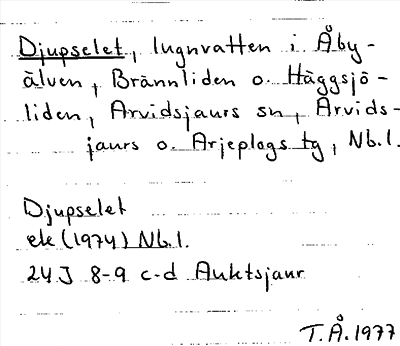 Djupselet, lugnvatten i Åby-
älven, Brännliden o. Häggsjö-
liden, Arvidsjaurs sn, Arvids-
jaurs o. Arjeplogs tg, Nb.l.
Djupselet
ek (1974) Nb.l.
24J 8-9 c-d Auktsjaur
T.Å.1977